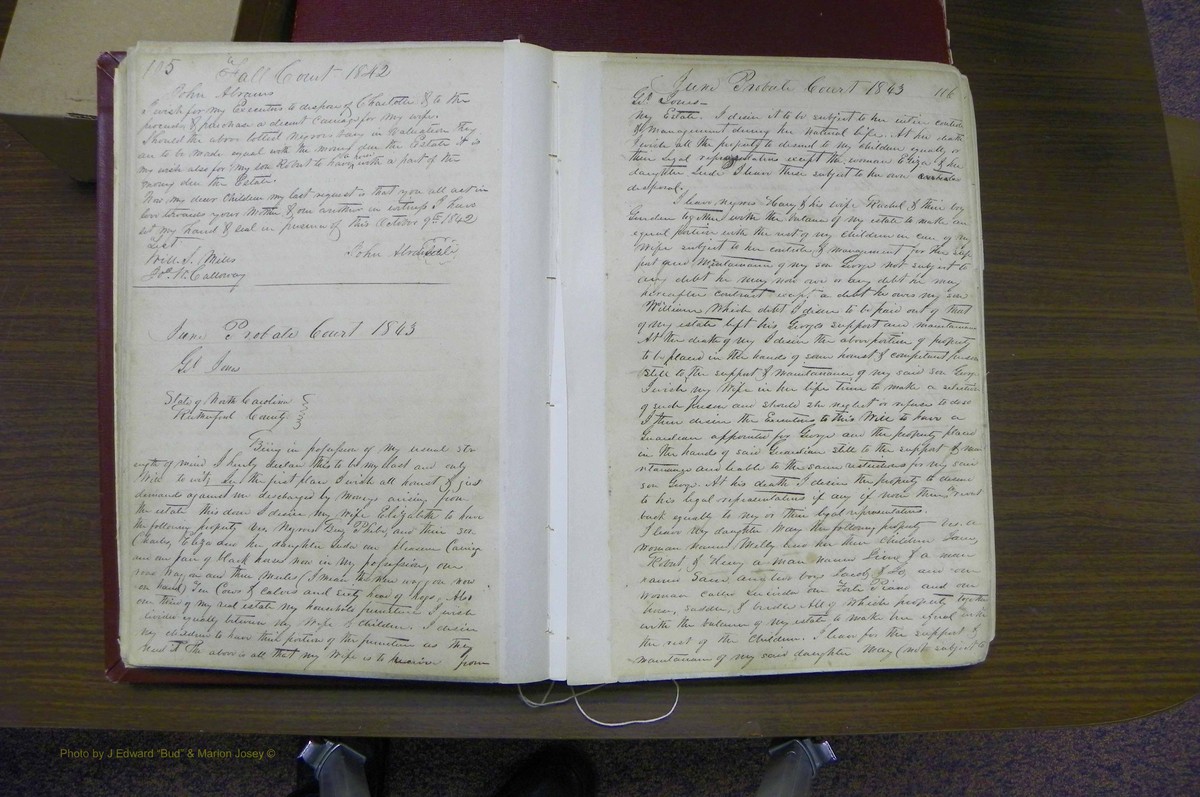 105 Fall Court 1842
John Abrams
I wish for my Executors to dispose of Charlotte & to the
proceeds & purchase a decent Carriage for my wife.
Should the above lotted Negroes vary in Valuation they
are to be made equal with the money due the Estate It is
my wish also for my son Robert to have his horse with a part of the
money due the Estate.
Now my dear Children my last request is that you all act in
love towards your Mother & one another in witness I have
set my hand & seal in presence of this October 9th 1842
Test
Will. J. Mills John Abrams Seal
Jos. W. Calloway
June Probate Court 1863
State of North Carolina
Rutherford County
Being in possession of my usual str-
ength of mind I hereby declare this to be my last and only
Will to wit, In the first place I wish all honest & just
demands against me discharged by moneys arising from
the estate this done I desire my Wife Elizabeth to have
the following property viz Negroes Phebe, and their son
Charles, Eliza and her daughter Suda one pleasure Carriage
and one pair of black horses now in my possession, one
road Waggon and three Mules (I mean the new waggon now
on hand) Ten Cows & Calves and sixty head of hogs, Also
one third of my real estate my household furniture I wish
divided equally between my Wife & Children. I desire
my children to have their portion of the furniture as they
need it The above is all that my Wife is to receive from
June Probate Court 1863 106
my Estate. I desire it to be subject to her entire control
& management during her natural life. At her death
I wish all the property to descend to my children equally, or
their legal representatives except the woman Eliza & her
daughter Suda I leave these subject to her own
disposal.
I leave negroes Harry & his wife Rachel & their boy
together with the balance of my estate to make an
equal portion with the rest of my children in care of my
Wife subject to her control & management for the sup-
port and Maintainance of my son George not subject to
any debt he may now owe or any debt he may
hereafter contract except a debt he owes my son
William Which debt I desire to be paid out of that
of my estate left his George's support and maintainance
At the death of my I desire the above portion of property
to be placed in the hands of some honest & competent person
still to the support & maintainance of my said son George
I wish my Wife in her life time to make a selection
of such person and should she neglect or refuse to do so
I then desire the Executors to this Will to have a
Guardian appointed for George and the property placed
in the hands of said Guardian still to the support & mai
ntainance and liable to the same restrictions for my said
son George. At his death I desire the property to descend
to his legal representatives if any if none then to revert
back equally to my or their legal representatives.
I leave my daughter Mary the following property viz a
woman named Milly and her three children Jane,
Robert, & Henry a man named & a man
named Sam, and two boys Jacob & and one
woman called Lucinda one Forte Piano and one
horse, saddle, & bridle All of Which property together
with the balance of my estate to make her equal with
the rest of the Children. I leave for the support &
maintainance of my said daughter Mary (not subject to